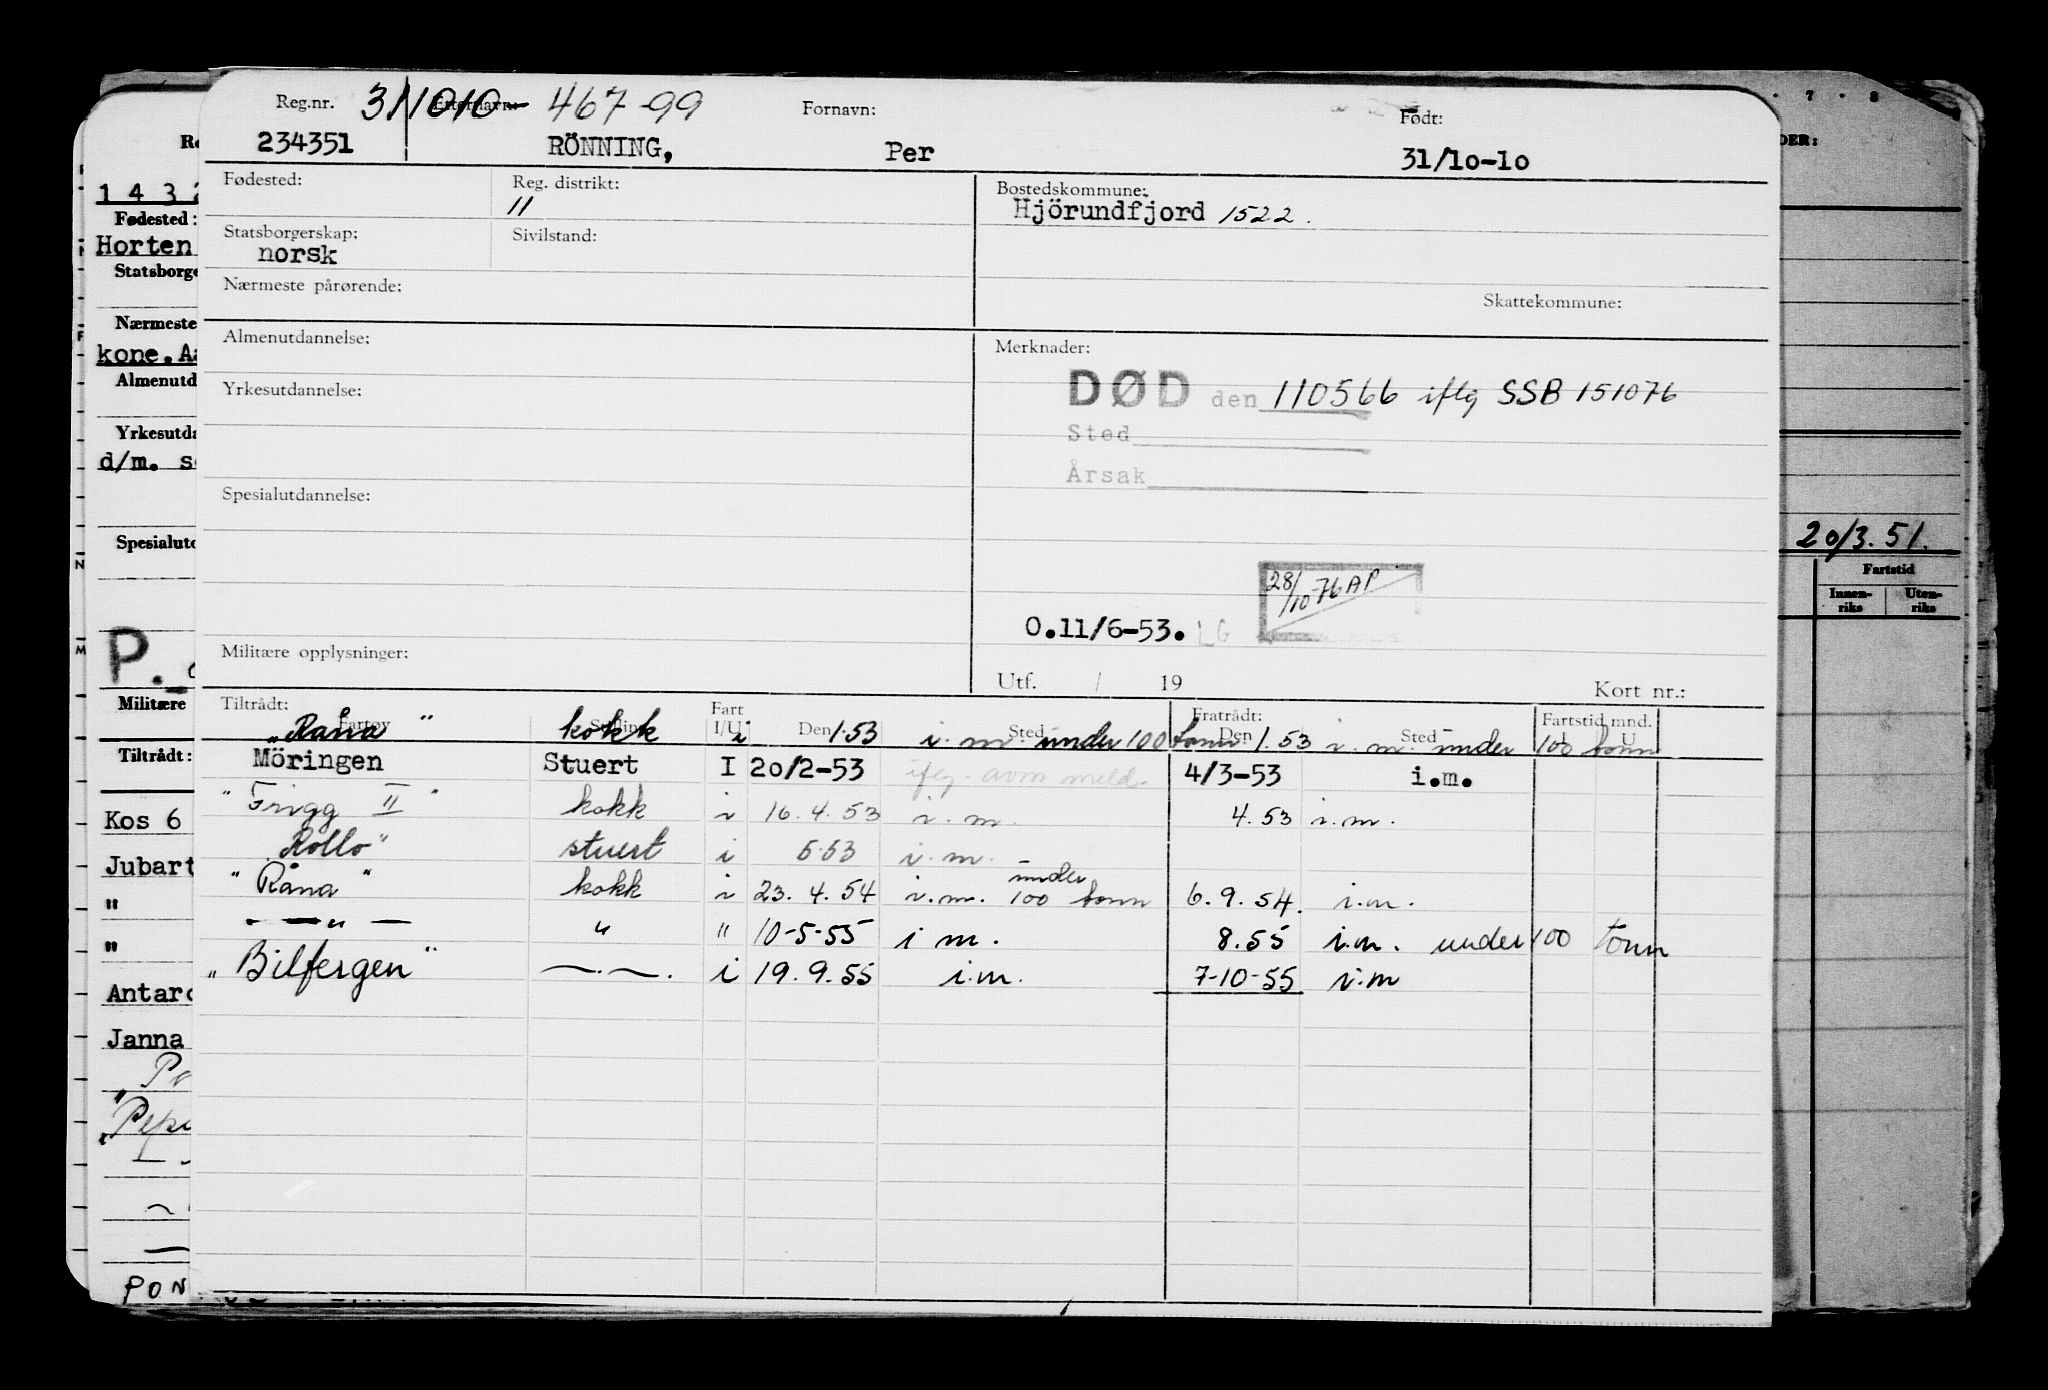 Reg.nr. 311010- 467-99 Etternavn: Fornavn: Født:
234351 RÖNNING, Per 31/10-10
Fødested: Reg. distrikt: Bostedskommune:
11 Hjörundfjord 1522.
Statsborgerskap: Sivilstand:
norsk
Nærmeste pårørende: Skattekommune:
Almenutdannelse: Merknader:
DØD den 110566 iflg SSB 151076
Yrkesutdannelse:
Sted
Årsak
Spesialutdannelse:
28/10-76 AP
O.11/6-53. LG
Militære opplysninger:
Utf. / 19 Kort nr.:
Tiltrådt: Fart Fratrådt: Fartstid mnd.
Fartøy Stilling I/U Den Sted Den Sted I U
"Råna" kokk i 1.53 i.m. under 100 tonn 1.53 i.m. under 100 tonn
Möringen Stuert I 20/2-53 iflg. avm meld. 4/3-53 i.m.
"Frigg II" kokk i 16.4.53 i.m. 4.53 i.m.
Rollo" stuert i 5.53 i.m.
"Råna" kokk i 23.4.54 i.m. under 100 tonn 6.9.54. i.m.
- — " — " " 10-5-55 i m. 8.55 i.m. under 100 tonn
"Bilfergen" —.—. i 19.9.55 i.m. 7-10-55 i.m
1 4 3 2
Fødested:
Horten
Statsborge
Nærmeste
kone. Aa
Almenutd
Yrkesutda
d/m. s
Spesialutd
P.
Militære
Tiltrådt:
Kos 6
Jubart
"
"
Antarc
Janna
PON
7 · 8
DER:
20/3.51.
Fartstid
Innen-riks Uten-riks